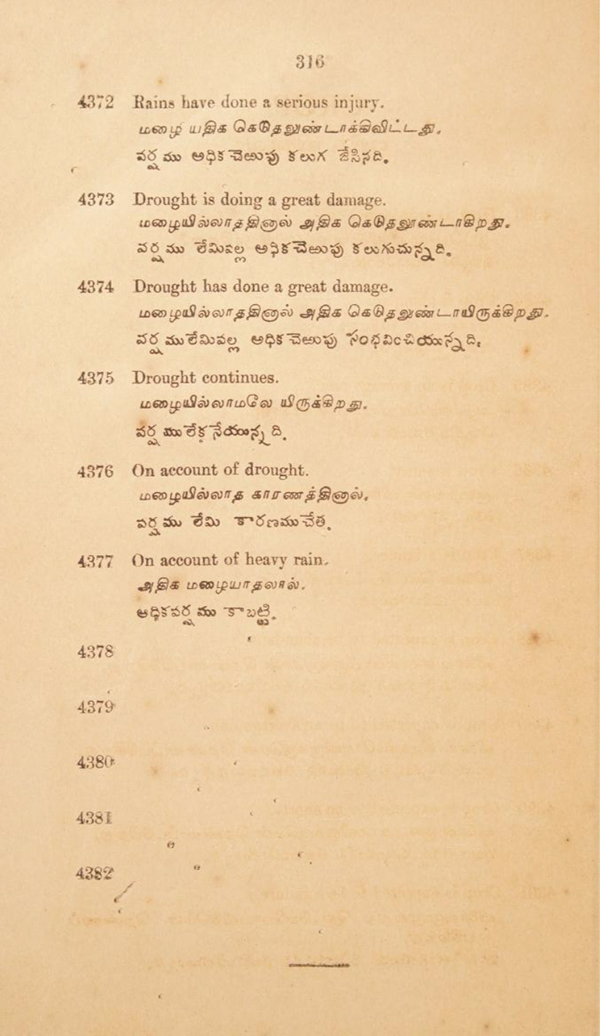 316
4372 Rains have done a serious injury.
மழை யதிக கெடுதலுண்டாக்கிவிட்டது.
వర్షము అధికచెఱుపు కలుగ జేసినది.
4373 Drought is doing a great damage.
மழையில்லாததினால் அதிக கெடுதலூண்டாகிறது.
వర్షము లేమివల్ల అధికచెఱుపు కలుగుచున్నది.
4374 Drought has done a great damage.
மழையில்லாததினால் அதிக கெடுதலுண்டாயிருக்கிறது.
వర్షములేమివల్ల అధికచెఱుపు సంధవించియున్నది.
4375 Drought continues.
மழையில்லாமலே யிருக்கிறது.
వర్షములేకనేయున్నది.
4376 On account of drought.
மழையில்லாத காரணத்தினால்.
వర్షము లేమి కారణముచేత.
4377 On account of heavy rain.
அதிக மழையாதலால்.
అధికవర్షము కాబట్టి.
4378
4379
4380
4381
4382